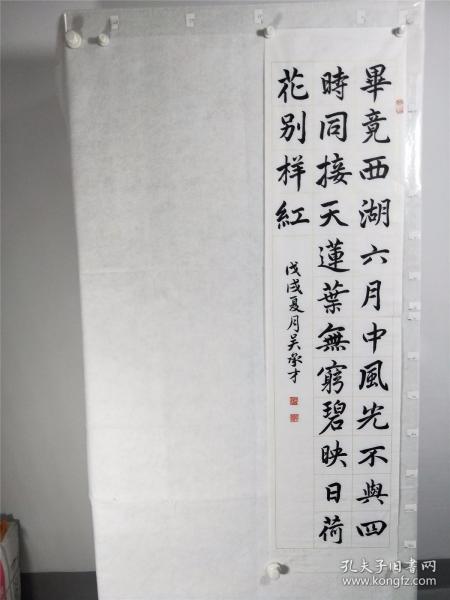 畢竟西湖六月中風光不與四
時同接天蓮葉無窮碧映日荷
花别样紅
戊戌夏月吴承才
孔夫子旧书网
www.kongfz.com